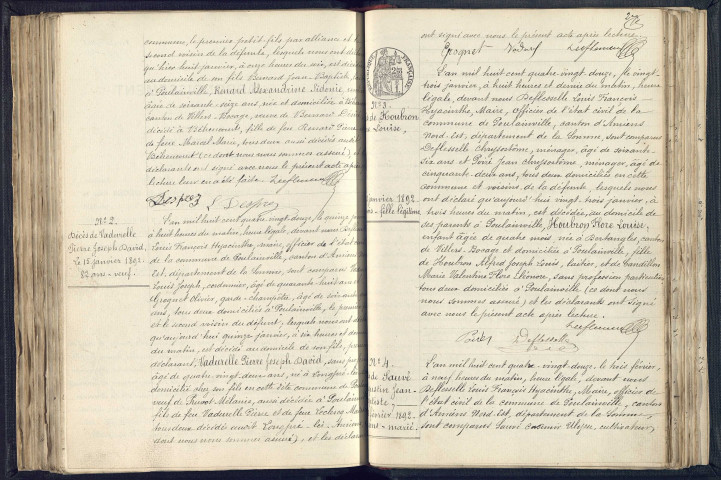 commune, le premier petit-fils par alliance et le
second voisin de la défunte, lesquels nous ont
qu'hier huit janvier, à onze heures du soir, est
au domicile de son fils Bernard Jean-Baptiste
à Poulainville, Renard Alexandrine Sidonie,
âgée de soixante-seize ans, née et domiciliée à
canton de Villers-Bocage, veuve de Bernard
décédé à fille de feu Renard
de feu Marcel Marie, tous deux aussi décédés
(ce dont nous nous sommes assuré) et
déclarants ont signé avec nous le présent acte
lecture leur en a été faite. Deflesselle
Desprez L. Desprez
N° 2.
Décès de Vadurelle
Pierre Joseph David
Le 15 janvier 1892
82 ans - veuf.
L'an mil huit cent quatre-vingt-douze, le quinze
à huit heures du matin, heure légale, devant nous
Louis François Hyacinthe, maire, officier de l'état
de la commune de Poulainville, canton d'Amiens
Est, département de la Somme, sont comparus
Louis Joseph, cordonnier, âgé de quarante-huit ans
Croquet Olivier, garde-champêtre, âgé de soixante
ans, tous deux domiciliés à Poulainville, le premier
et le second voisin du défunt; lesquels nous ont
qu'aujourd'hui quinze janvier, à six heures
du matin, est décédé au domicile de son fils,
déclarant, Vadurelle Pierre Joseph David, sans
âgé de quatre-vingt-deux ans, né à Longpré
domicilié chez son fils en cette dite commune de
veuf de Mélanie, aussi décédée à Poulainville
fils de feu Vadurelle Pierre et de feu Leclercq
tous deux décédés audit Longpré-lès-Amiens
dont nous nous sommes assuré), et les déclarants
ont signé avec nous le présent acte après lecture.
Croquet Vadurel Deflesselle
N° 3.
de Houbron
Louise,
janvier 1892.
fille légitime
L'an mil huit cent quatre-vingt-douze, le vingt-
trois janvier, à huit heures et demie du matin, heure
légale, devant nous Deflesselle Louis François
Hyacinthe, Maire, officier de l'état civil de la
commune de Poulainville, canton d'Amiens
Nord-Est, département de la Somme, sont comparus
Deflesselle Chrysostôme, ménager, âgé de soixante-
six ans et Poiré Jean Chrysostôme, ménager, âgé de
cinquante-deux ans, tous deux domiciliés en cette
commune et voisins de la défunte, lesquels nous
ont déclaré qu'aujourd'hui vingt-trois janvier, à
trois heures du matin, est décédée, au domicile de
ses parents à Poulainville, Houbron Flore Louise,
enfant âgée de quatre mois née à Bertangles, canton
de Villers-Bocage et domiciliée à Poulainville, fille
de Houbron Alfred Joseph Louis, et de Candillon
Marie Valentine Flore Eléonore, sans profession particulière,
tous deux domiciliés à Poulainville (ce dont nous
nous sommes assuré) et les déclarants ont signé
avec nous le présent acte après lecture.
Deflesselle
Poiré Deflesselle
N° 4.
de Sauvé
Jean-
Baptiste
février 1892.
ans - marié.
L'an mil huit cent quatre-vingt-douze, le trois février,
à neuf heures du matin, heure légale, devant nous
Deflesselle Louis François Hyacinthe, Maire, officier de
l'état civil de la commune de Poulainville, canton
d'Amiens Nord-Est, département de la Somme,
sont comparus Sauvé Casimir Ulysse, cultivateur,